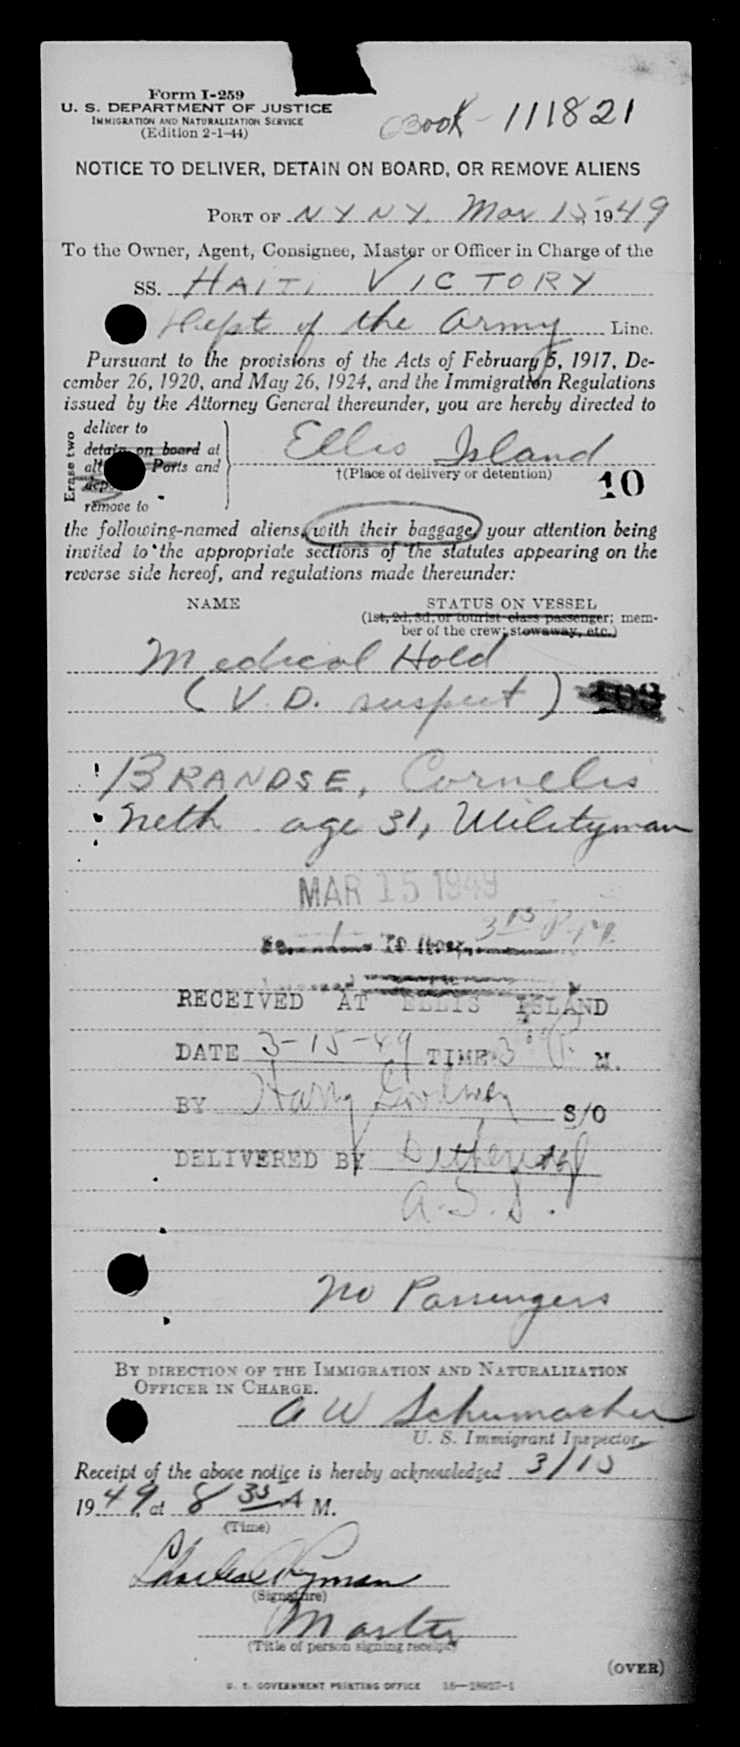 Form I-259
U. S. DEPARTMENT OF JUSTICE
IMMIGRATION AND NATURALIZATION SERVICE
(Edition 2-1-44)
Book - 111821
NOTICE TO DELIVER, DETAIN ON BOARD, OR REMOVE ALIENS
PORT OF N Y N Y. Mar 15, 1949
To the Owner, Agent, Consignee, Master or Officer in Charge of the
SS. HAITI VICTORY
Dept of the Army Line.
Pursuant to the provisions of the Acts of February 5, 1917, De-
cember 26, 1920, and May 26, 1924, and the Immigration Regulations
issued by the Attorney General thereunder, you are hereby directed to
Erase two
deliver to
detain on board at
Ports and
remove to
Ellis Island
†(Place of delivery or detention)
10
the following-named aliens, with their baggage, your attention being
invited to the appropriate sections of the statutes appearing on the
reverse side hereof, and regulations made thereunder:
NAME STATUS ON VESSEL
(1st, 2d, 3d, or tourist class passenger; mem-
ber of the crew; stowaway, etc.)
Medical Hold
(V. D. suspect)
BRANDSE, Cornelis
Neth age 31, Utilityman
MAR 15 1949
1 3 15 P.M.
RECEIVED AT ELLIS ISLAND
DATE 3-15-49 TIME 3 P. M.
BY Harry S/O
DELIVERED BY
No Passengers
BY DIRECTION OF THE IMMIGRATION AND NATURALIZATION
OFFICER IN CHARGE.
A W Schumacher
U. S. Immigrant Inspector.
Receipt of the above notice is hereby acknowledged 3/15
1949, at 8 35 A M.
(Time)
Charles Ryman
(Signature)
Master
(Title of person signing receipt)
(OVER)
U. S. GOVERNMENT PRINTING OFFICE